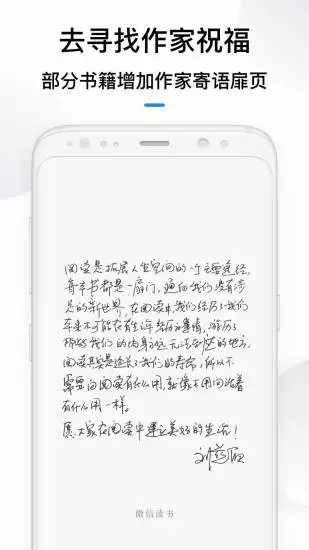 去寻找作家祝福
部分书籍增加作家寄语扉页
阅读是拓展人生空间的一个主要途径,
每本书都是一扇门,通向我们没有涉
足的新世界,在阅读中,我们经历了我们
本来不可能在有生之年经历的事情,游历了
那些我们的肉身永远无法到达的地方,
阅读其实是延长了我们的寿命,所以不
需要问阅读有什么用,就像不用问活着
有什么用一样。
愿大家在阅读中建立美好的生活!
微信读书